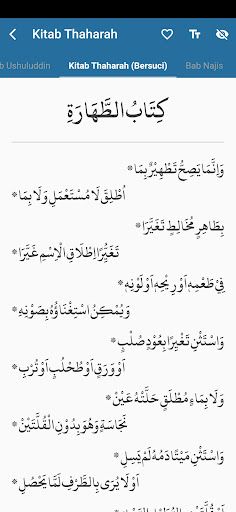 Kitab Thaharah
b Ushuluddin Kitab Thaharah (Bersuci) Bab Najis
كِتَابُ الطَّهَارَةِ
وَاِنَّمَا يَصِحُّ تَطْهِيْرٌ بِمَا *
اُطْلِقَ لَا مُسْتَعْمَلٍ وَلَا بِمَا *
بِطَاهِرٍ مُخَالِطٍ تَغَيَّرَا *
تَغَيُّرًا اِطْلَاقَ الْاِسْمِ غَيَّرَا *
فِيْ طَعْمِهِ اَوْ رِيْحِهِ اَوْ لَوْنِهِ *
وَيُمْكِنُ اسْتِغْنَاؤُهُ بِصَوْنِهِ *
وَاسْتَثْنِ تَغْيِيْرًا بِعُوْدٍ صُلْبٍ *
اَوْ وَرَقٍ اَوْ طُحْلُبٍ اَوْ تُرْبٍ *
وَلَا بِمَاءٍ مُطْلَقٍ حَلَّتْهُ عَيْنٌ *
نَجَاسَةٍ وَهُوَ بِدُوْنِ الْقُلَّتَيْنْ *
وَاسْتَثْنِ مَيْتًا دَمُهُ لَمْ يَسِلِ *
اَوْ لَا يُرَى بِالطَّرْفِ لَمَّا يَحْصُلِ *